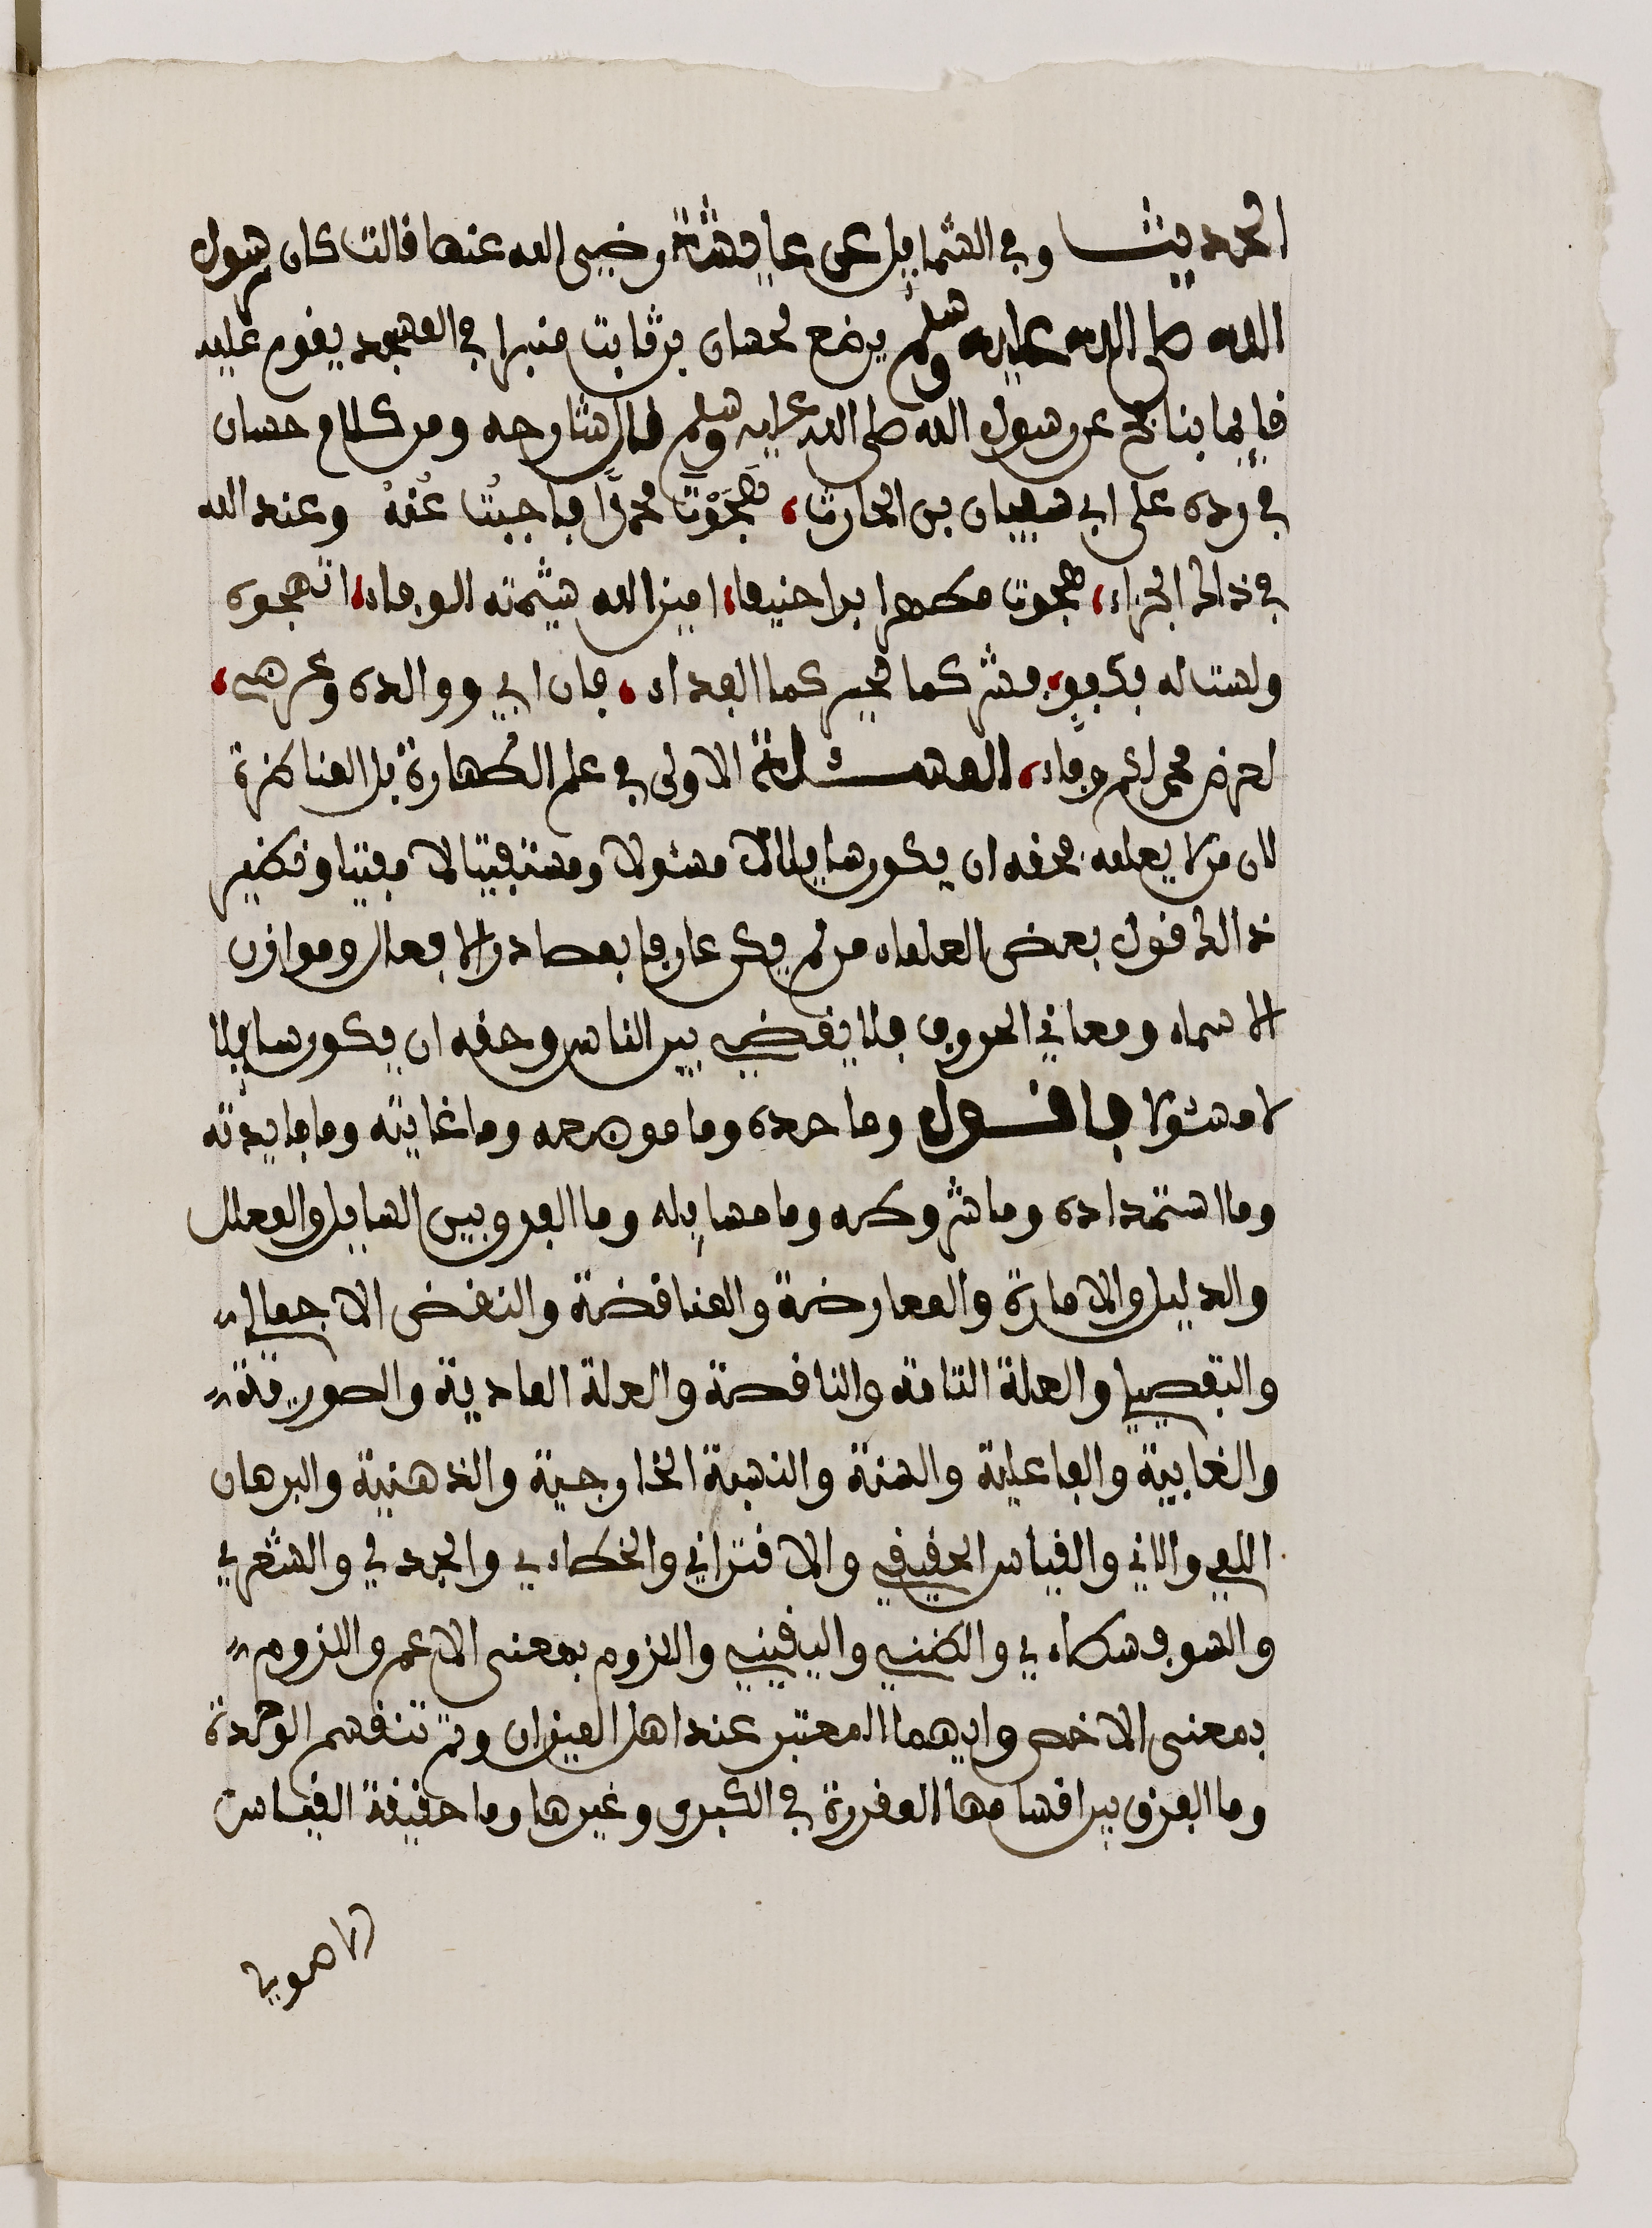 الحديث وفي الشمايل عن عايشة رضي الله عنها قالت كان رسول
الله صلى الله عليه وسلم يضع لحسان بن ثابت منبرا في المسجد يقوم عليه
قايما ينافح عن رسول الله صلى الله عليه وسلم قال شارحه ومن كلام حسان
في رده على ابي سفيان بن الحارث، هَجَوْتَ محمدًا فأجبْتُ عَنْهُ وعند الله
في ذالك الجزاء، هجوت مطهرا برا حنيفا، امين الله شيمته الوفاء، اتهجوه
ولست له بكفو، فشركما لخيركما الفداء، فان ابي ووالده وعرضي،
لعرض محمد منكم وقاء، المسئلة الاولى في علم الطهارة بل المناظرة
لان من لا يعلمه فحقه ان يكون سايلا لا مسئولا ومستفتيا لا مفتيا ونظير
ذالك قول بعض العلماء من لم يكن عارفا بمصادر الافعال وموازن
الاسماء ومعاني الحروف فلا يقضي بين الناس وحقه ان يكون سايلا
لا مسئولا فاقول وما حده وما موضوعه وما غايته وما فايدته
وما استمداده وما شروطه وما مسايله وما الفرق بين السايل والمعلل
والدليل والامارة والمعارضة والمناقضة والنقض الاجمالي
والتفصيلي والعلة التامة والناقصة والعلة المادية والصورية
والغايية والفاعلية والسنة والنسبة الخارجية والذهنية والبرهان
اللمي والاني والقياس الحقيقي والاقتراني والخطاءي والجدلي والشعري
والسوفسطاءي والظني واليقيني واللزوم بمعنى الاعم واللزوم
بمعنى الاخص وايهما المعتبر عند اهل الميزان وكم تنقسم الوحدة
وما الفرق بين اقسامها المقررة في الكبرى وغيرها وما حقيقة القياس
الاصولي